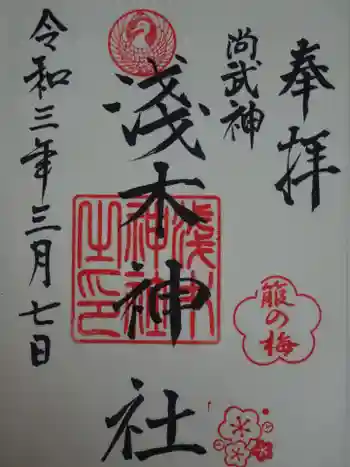 奉拝
尚武神
浅木神社
令和三年三月七日
浅木神社之印
箙の梅